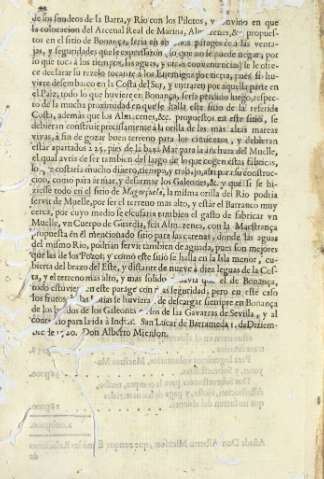 de los sondeos de la Barra, y Rio con los Pilotos, y convino en que
la colocacion del Arcenal Real de Marina, Almacenes, &c. propuestos
en el sitio de Bonança, seria en aquel parage con las ventajas,
y seguridades que le expressaron, so que no se puede negar, por
lo que toca à los tiempos, las aguas, y otras conveniencias; se le ofrece
declarar su rezelo tocante à los Enemigos, porque pues si huviere
desembarco en la Costa del Sur, y entraren por aquella parte en
el Pais, todo lo que huviere en Bonança, seria perdido luego, respecto
de la mucha proximidad en que se halla este sitio de la referida
Costa, ademàs que los Almacenes, &c. propuestos en este sitio, se
debieran construir precisamente à la orilla de las mas altas mareas
vivas, à fin de gozar buen terreno para los cimientos, y debieran
estàr apartados 225. pies de la baxa Mar para la anchura del Muelle,
el qual avria de ser tambien del largo de lo que cogen estas fabricas,
lo que costaria mucho dinero, tiempo, y trabajo, assi para su construccion,
como para armar, y desarmar los Galeones, &c. y que si se hiziesse
todo en el sitio de , la misma orilla del Rio podria
servir de Muelle, por ser el terreno mas alto, y estàr el Barranco muy
cerca, por cuyo medio se escusaria tambien el gasto de fabricar un
Muelle, un Cuerpo de Guardia, seis Almacenes, con la Maestrança
propuesta en el mencionado sitio para las carenas, donde las aguas
del mismo Rio, podrian servir tambien de aguada, pues son mejores
que las de los Pozos; y como este sitio se halla en la Isla menor, cubierta
del brazo del Este, y distante de nueve à diez leguas de la Costa,
y el terreno mas alto, y mas solido que el de Bonança,
todo estuviera en este parage con mas seguridad; pero en este caso
los frutos de Indias se huvieran de descargar siempre en Bonança
de los bordos de los Galeones à bordo de las Gavarras de Sevilla, y al
contrario para la ida à Indias. San Lucar de Barrameda 1. de Diziembre
de 1720. Don Alberto Mienson.